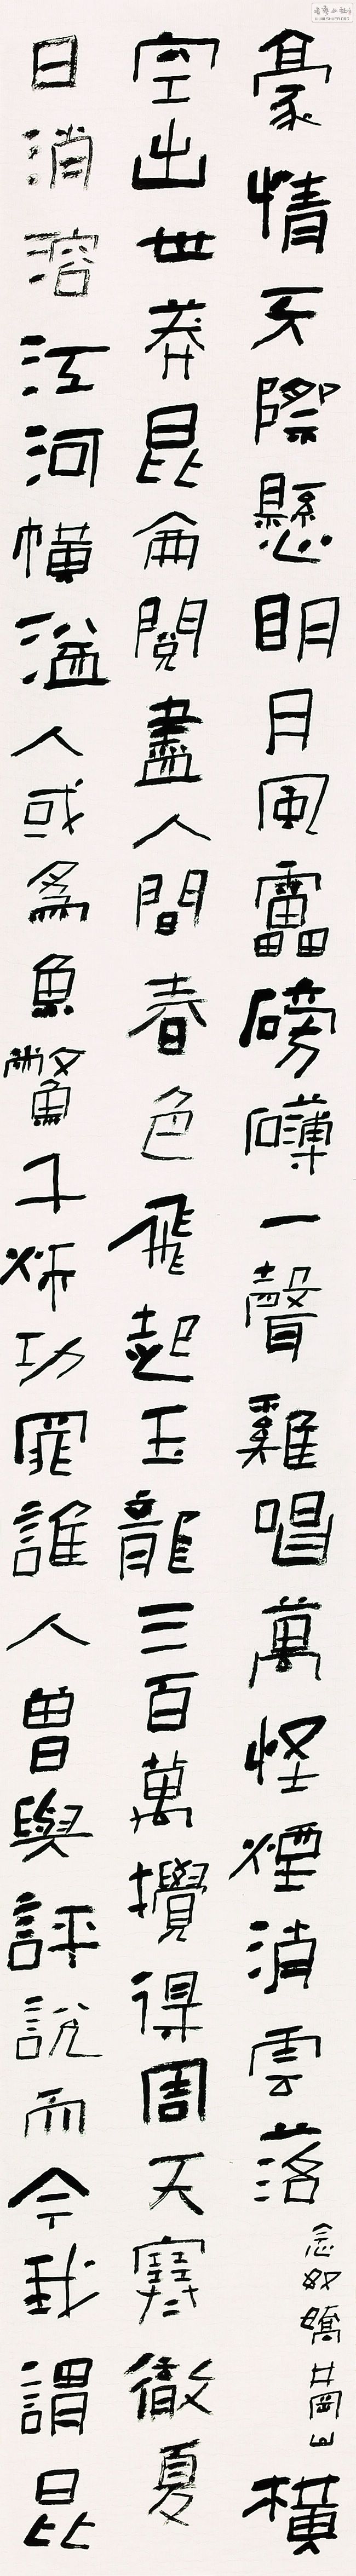 豪情天際懸明月風靁磅礴一聲雞唱萬怪煙消雲落
念奴嬌井岡山
橫
空出世莽昆侖閱盡人間春色飛起玉龍三百萬攪得周天寒徹夏
日消溶江河橫溢人或為魚鱉千秋功罪誰人曾與評說而今我謂昆